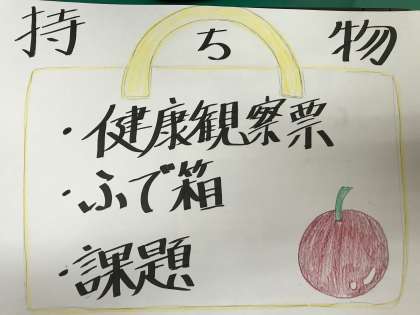 持ち物
・健康観察票
・ふで箱
・課題